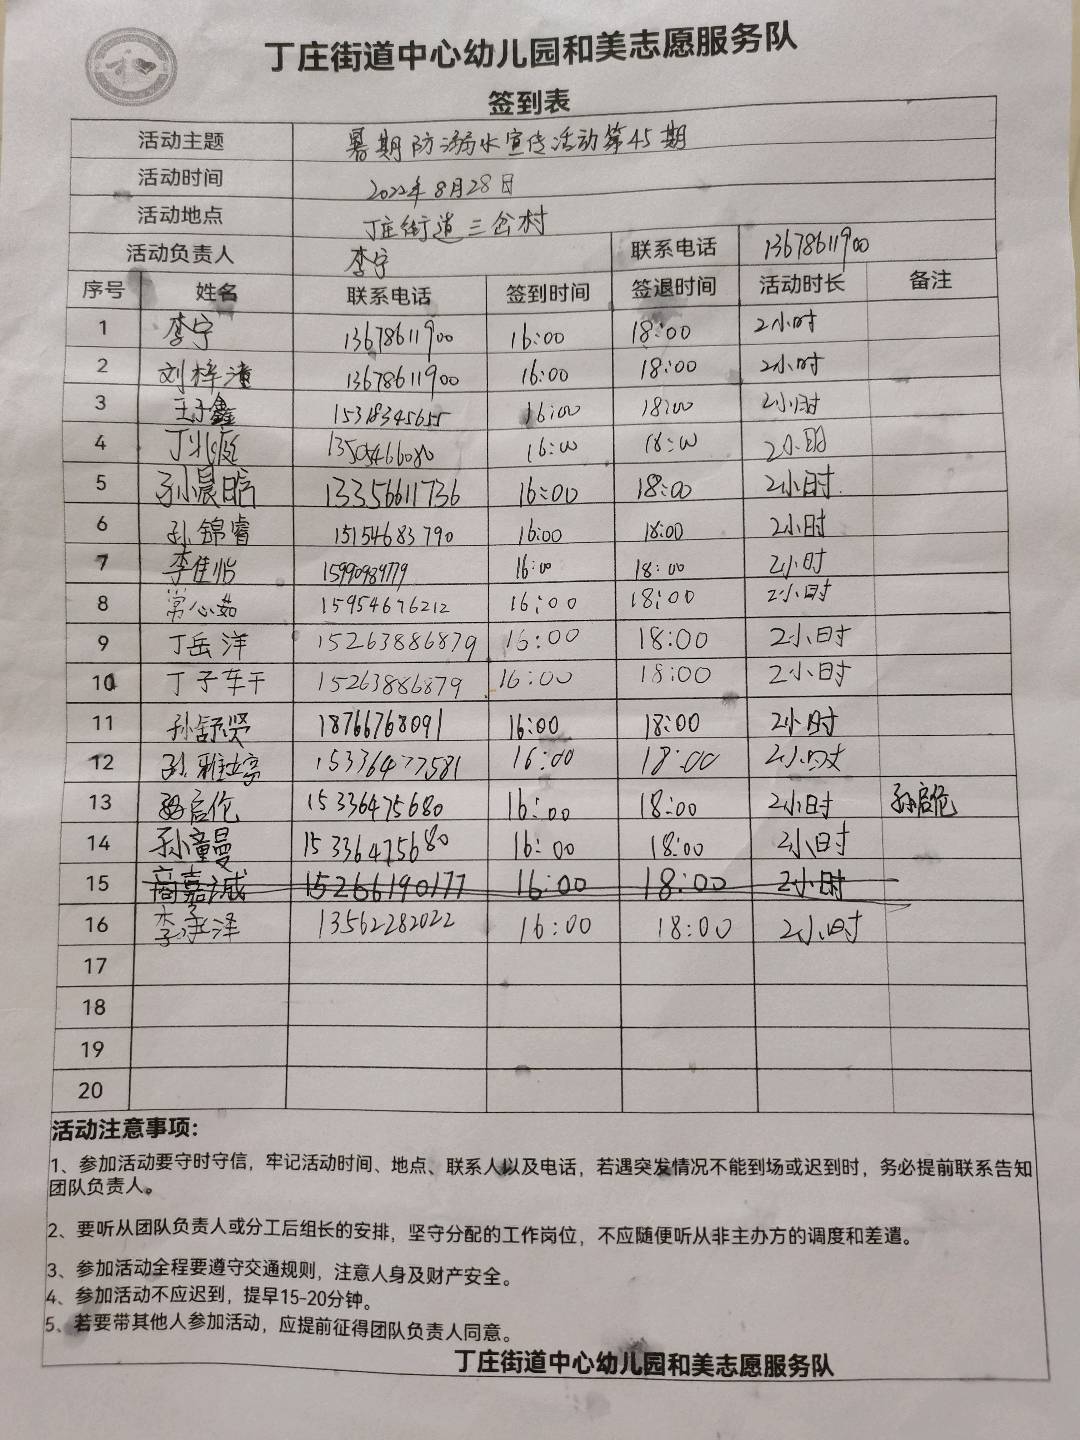 丁庄街道中心幼儿园和美志愿服务队
签到表
活动主题 暑期防溺水宣传活动第45期
活动时间 2022年8月28日
活动地点 丁庄街道三岔村
活动负责人 李宁 联系电话 13678611900
序号 姓名 联系电话 签到时间 签退时间 活动时长 备注
1 李宁 13678611900 16:00 18:00 2小时
2 刘梓潼 13678611900 16:00 18:00 2小时
3 王子鑫 15318345655 16:00 18:00 2小时
4 丁兆庭 13505466080 16:00 18:00 2小时
5 孙晨晗 13356611736 16:00 18:00 2小时
6 孙锦睿 15154683790 16:00 18:00 2小时
7 李佳怡 15990989779 16:00 18:00 2小时
8 常心茹 15954676212 16:00 18:00 2小时
9 丁岳洋 15263886879 16:00 18:00 2小时
10 丁子车干 15263886879 16:00 18:00 2小时
11 孙舒贤 18766768091 16:00 18:00 2小时
12 孙雅婷 15336477581 16:00 18:00 2小时
13 孙启伦 15336475680 16:00 18:00 2小时 孙启伦
14 孙童曼 15336475680 16:00 18:00 2小时
15 商嘉诚 15266190177 16:00 18:00 2小时
16 李承泽 13562282022 16:00 18:00 2小时
17
18
19
20
活动注意事项:
1、参加活动要守时守信，牢记活动时间、地点、联系人以及电话，若遇突发情况不能到场或迟到时，务必提前联系告知
团队负责人。
2、要听从团队负责人或分工后组长的安排，坚守分配的工作岗位，不应随便听从非主办方的调度和差遣。
3、参加活动全程要遵守交通规则，注意人身及财产安全。
4、参加活动不应迟到，提早15-20分钟。
5、若要带其他人参加活动，应提前征得团队负责人同意。
丁庄街道中心幼儿园和美志愿服务队